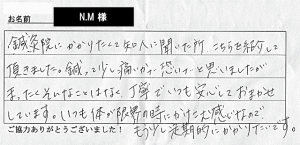 お名前 N.M 様
鍼灸院にかかりたくて知人に聞いた所 こちらを紹介して
頂きました。鍼って少し痛いかナ 恐いナーと思いましたが
まったくそんなことはなく、丁寧でいつも安心しておまかせ
しています。いつも体が限界の時にかけこむ感じなので
もう少し定期的にかかりたいです。
ご協力ありがとうございました!